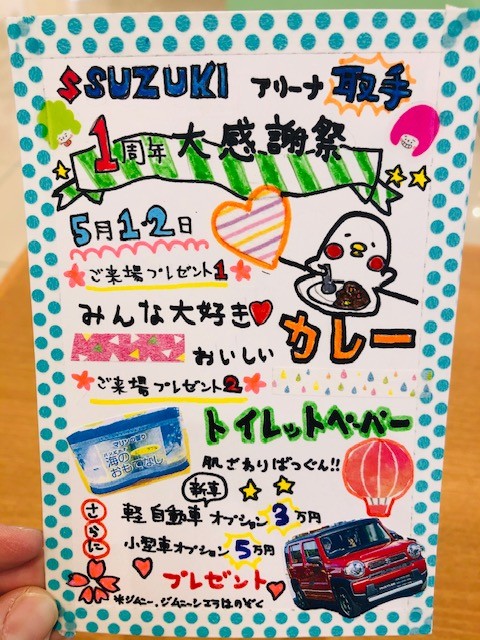 SUZUKI アリーナ 取手
1周年 大感謝祭
5月1.2日
ご来場プレゼント1
みんな大好き
おいしい カレー
ご来場プレゼント2
トイレットペーパー
海の
おもてなし
肌ざわりばつぐん!!
さらに
新車
軽自動車 オプション 3万円
小型車オプション 5万円
プレゼント
※ジムニー、ジムニーシエラはのぞく